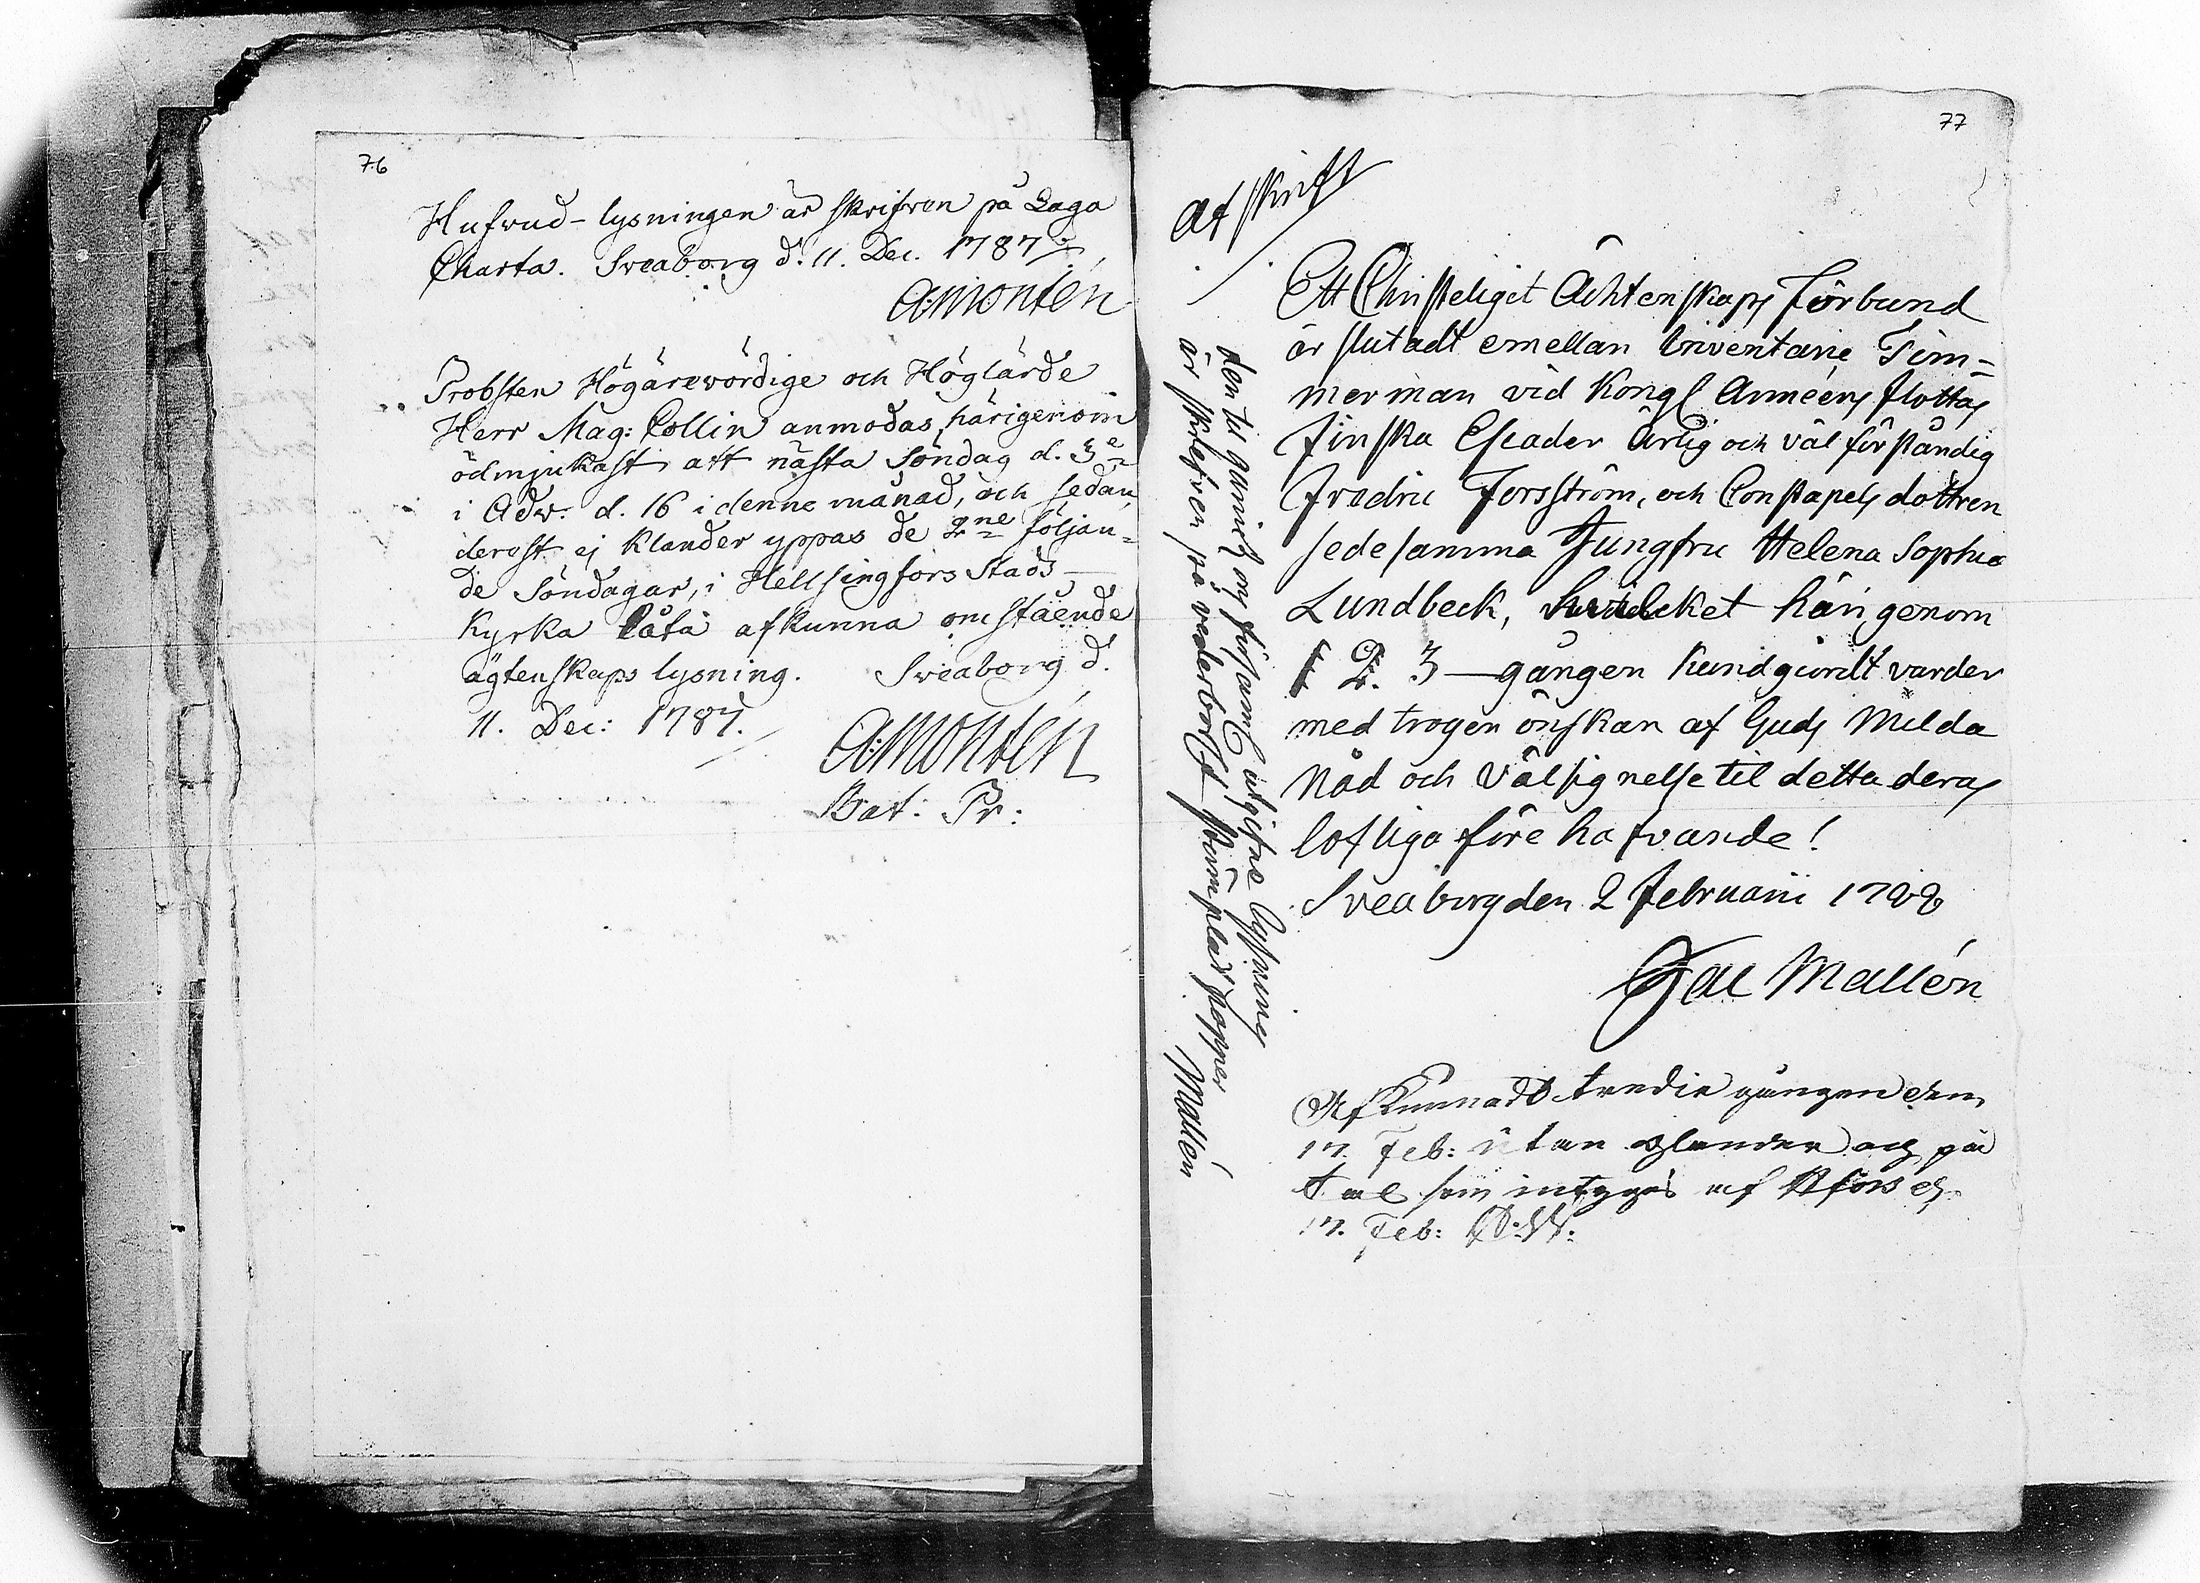 76
Hufwud-lysningen är skrifven på Laga
Charta. Sveaborg d. 11. Dec. 1787.
A:Montén
Probsten Högärewördige och Höglärde
Herr Mag: Collin anmodas härigenom
ödmjukast att nästa Söndag d. 3e
i Adv. d. 16 i denne månad, och sedan
derest ej klander yppas de 2ne följan=
de Söndagar, i Hellsingfors Stads
Kyrka låta afkunna omstående
ägtenskaps lysning. Sveaborg d.
11. Dec: 1787.
A:Montén
Bat: Pr:
77
Afskrift
Ett ChristeligetÄchtenskaps Förbund
är slutadt emellan Inventarie Tim=
merman vid Kongl Arméens flottas
Finska Escader Ärlig och väl förståndig
Fredric Forsström, och Constapels dottren
sedesamma Jungfru Helena Sophia
Lundbeck, hvilcket härigenom
1 2. 3 gången kundgiordt varder
med trogen önskan af Guds Milda
Nåd och Välsignelse til detta deras
lofliga förehafvande!
Sveaborg den 2 Februarii 1788
Jac Mallén
Afkunnadt tredie gången den
17. Feb: utan klander och på
tal som intygas af Hfors d.
17. Feb:
den til Garnisons församl utgifne Lysning
är skrefven på vederbörl stämplad papper
Mallén